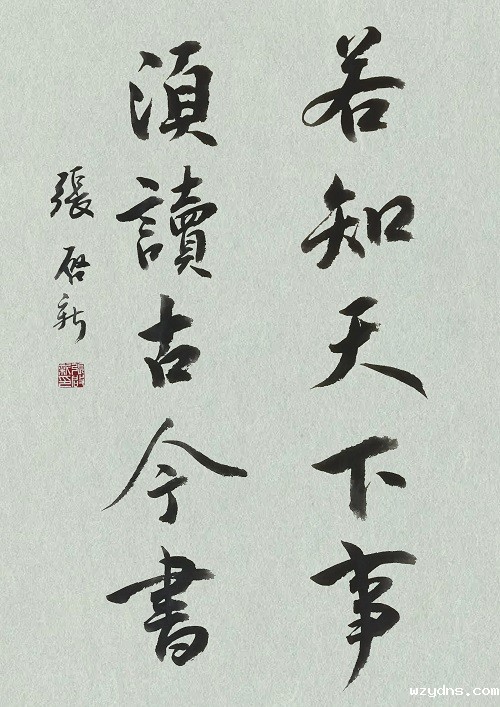 若知天下事
須讀古今書
張啓新
wzydns.com